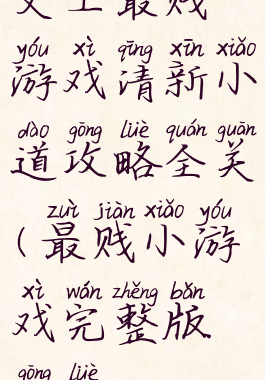 上最贱
yóu xì qīng xīn xiǎo
游戏清新小
dào gōng lüè quán guān
道攻略全关
zuì jiàn xiǎo yóu
(最贱小游
xì wán zhěng bǎn
戏完整版
gōng lüè